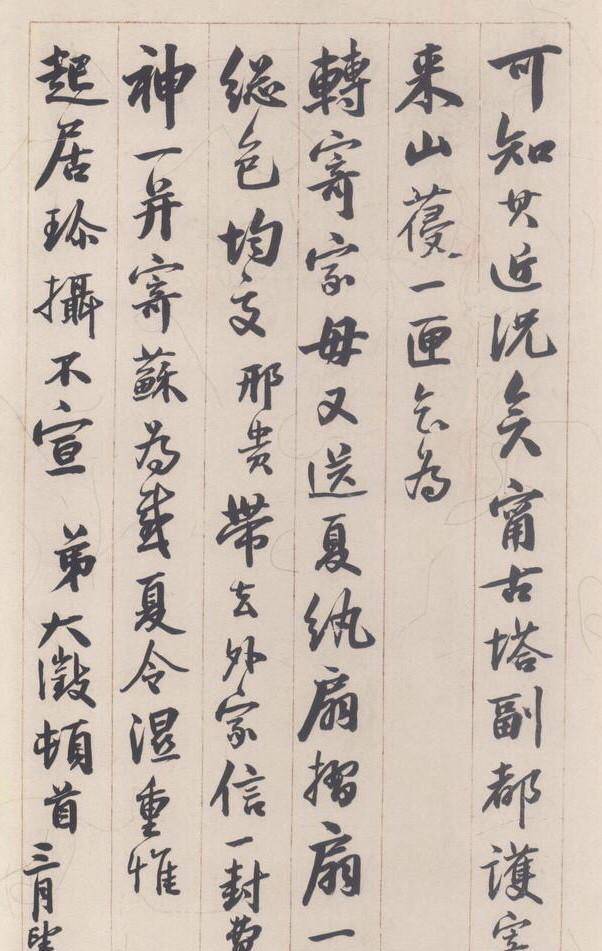 可知其近況矣甯古塔副都護寄
来山葠一匣乞為
轉寄家母又送夏紈扇摺扇一
總包均交邢貴帶去外家信一封費
神一并寄蘇為感夏令濕重惟
起居珍攝不宣 弟大澂頓首 三月望